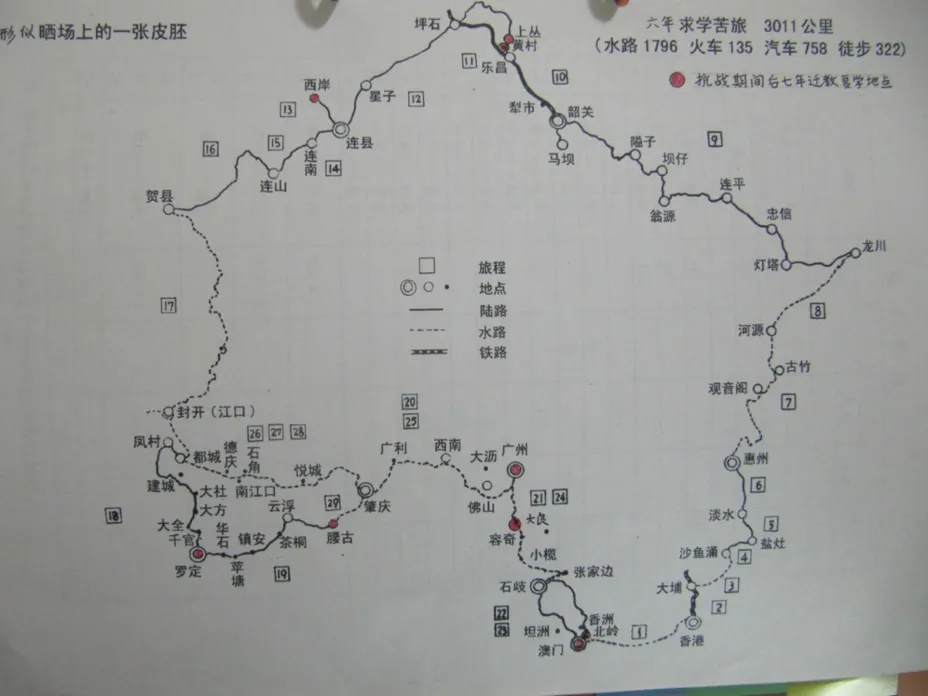 形似晒场上的一张皮胚
六年求学苦旅 3011公里
(水路1796 火车135 汽车758 徒步322)
抗战期间台七年迁教复学地点
坪石
上丛
黄村
乐昌
11
10
西岸
星子
12
13
犁市
韶关
连县
15
16
连南
14
马坝
隘子
9
坝仔
连山
连平
贺县
翁源
忠信
龙川
灯塔
旅程
地点
陆路
水路
铁路
17
8
河源
古竹
观音阁
7
封开(江口)
20
25
凤村
都城
德庆
石角
26 27 28
悦城
广利
西南
大沥
广州
惠州
建城
大社
南江口
大方
云浮
29
肇庆
佛山
21 24
6
18
大全
千官
华石
镇安
茶桐
腰古
容奇
大良
淡水
5
盐灶
罗定
苹塘
19
小榄
沙鱼涌
4
石岐
张家边
大埔
3
22
23
香洲
2
坦洲
北岭
1
澳门
香港